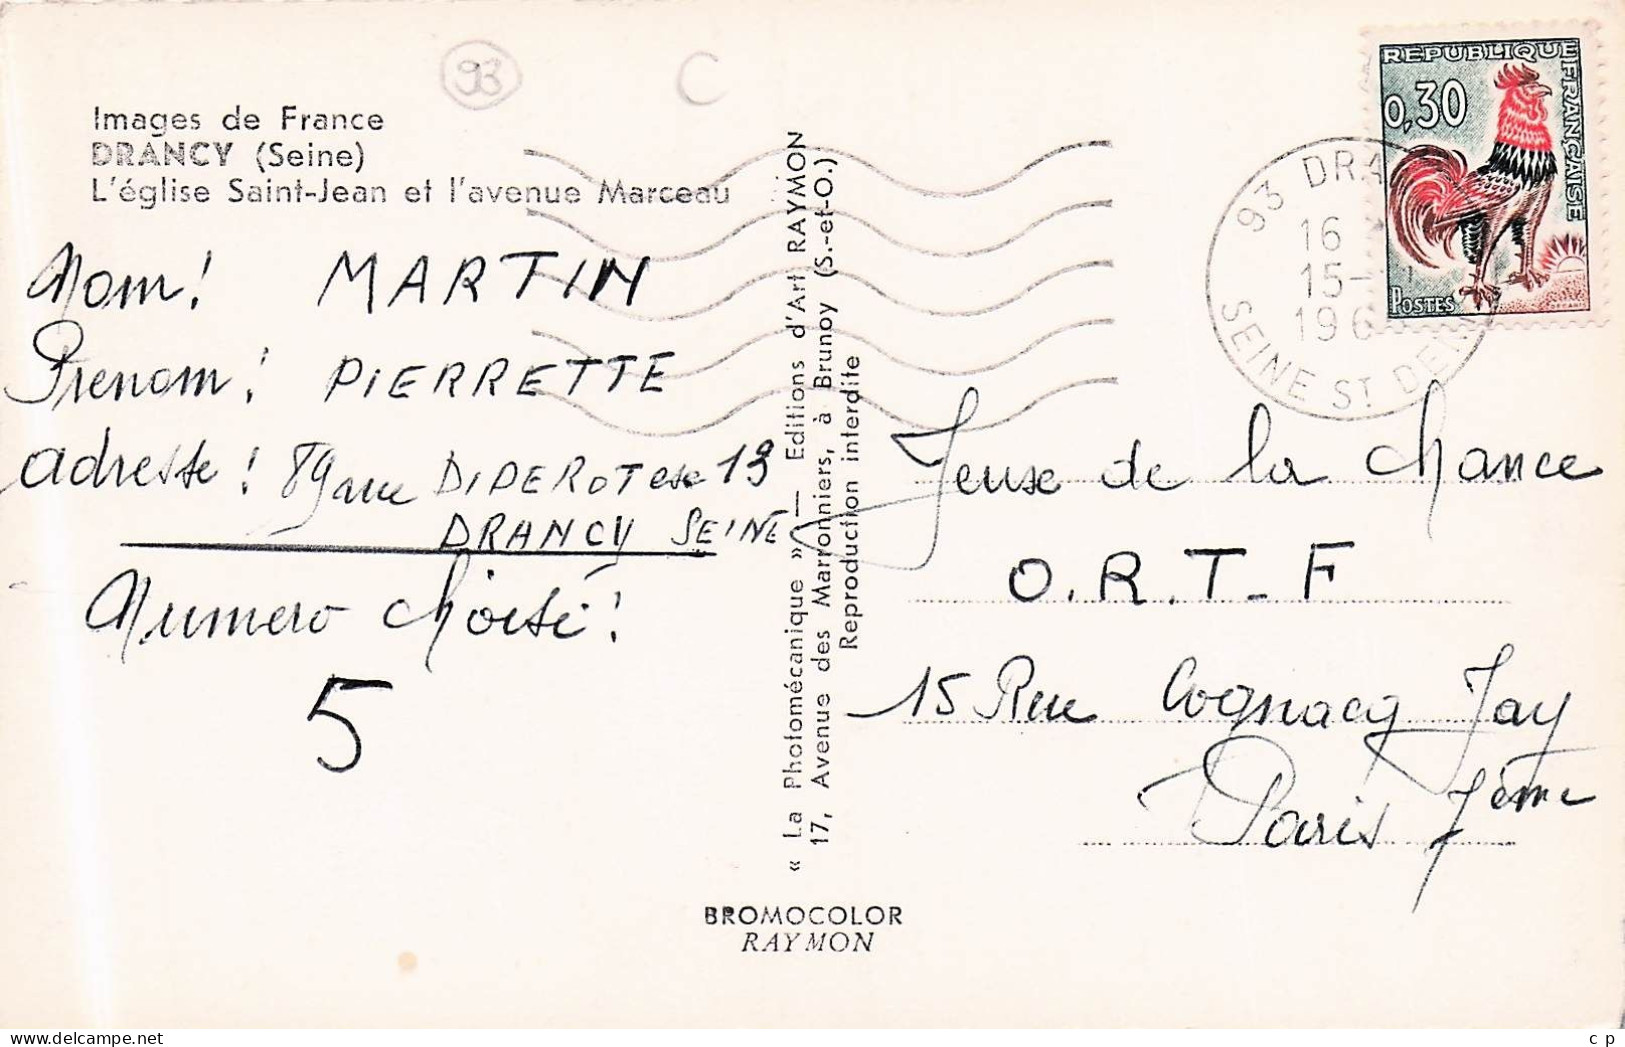 93
C
Images de France
DRANCY (Seine)
L'église Saint-Jean et l'avenue Marceau
Nom! MARTIN
Prenom! PIERRETTE
adresse! 89 rue DIDEROT esc 13
DRANCY SEINE
Numero choisi!
5
« La Photomécanique » — Editions d'Art RAYMON
17, Avenue des Marronniers, à Brunoy (S.-et-O.)
Reproduction interdite
BROMOCOLOR
RAYMON
REPUBLIQUE FRANÇAISE
0,30
POSTES
93 DRA
16
15-
196
SEINE ST DEN
Jeuse de la chance
O.R.T-F
15 Rue Cognacq Jay
Paris 7ème
c p